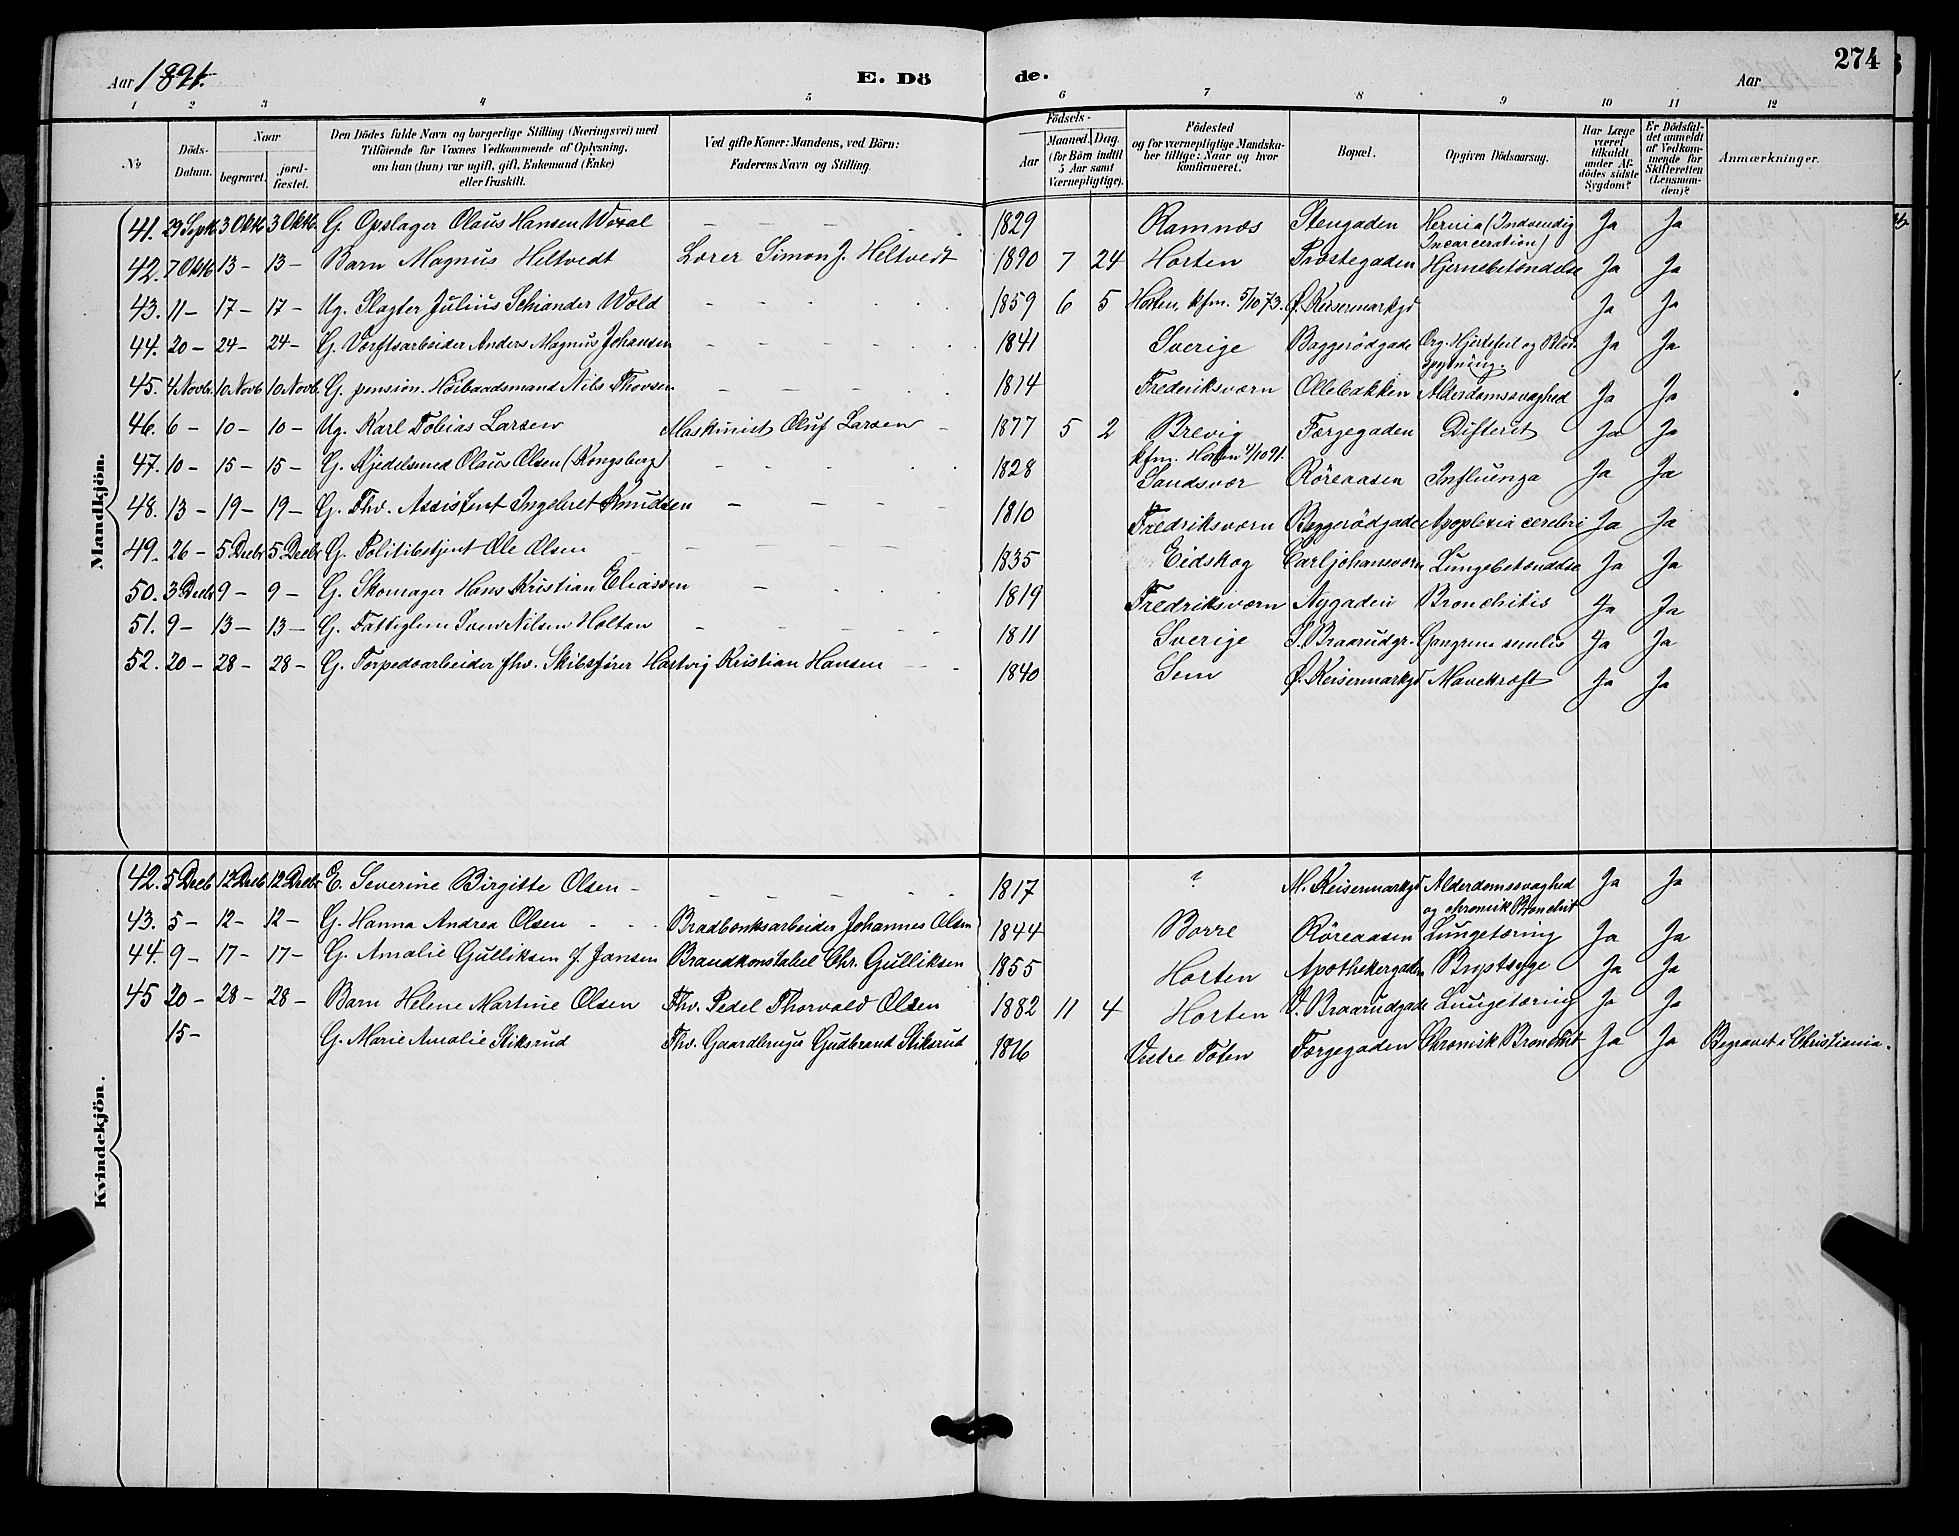 274
Aar 1891. E. Dö de. Aar
1 2 3 4 5 6 7 8 9 10 11 12
No
Döds-Datum.
Naar
begravet.
jordfæstet.
Den Dödes fulde Navn og borgerlige Stilling (Næringsvei) med
Tilföiende for Voxnes Vedkommende af Oplysning,
om han (hun) var ugift, gift, Enkemand (Enke)
eller fraskilt.
Ved gifte Koner: Mandens, ved Börn:
Faderens Navn og Stilling.
Födsels-
Aar
Maaned. Dag.
(for Börn indtil
5 Aar samt
Værnepligtige).
Födested
og for værnepligtige Mandskaber tillige: Naar og hvor
konfirmeret.
Bopæl.
Opgiven Dödsaarsag.
Har Læge
været
tilkaldt
under Afdödes sidste
Sygdom?
Er Dödsfaldet anmeldt
af Vedkommende for
Skifteretten
(Lensmanden)?
Anmærkninger.
Mandkjön.
41. 29 Sept. 3 Oktb 3 Oktb. G. Opslager Olaus Hansen Woxal 1829 Ramnæs Stengaden Hernia (Indvendig Incarceration) Ja Ja
42. 7 Oktb 13 - 13 - Barn Magnus Heltvedt Lærer Simon J. Heltvedt 1890 7 24 Horten Præstegaden Hjernebetændelse Ja Ja
43. 11 - 17 - 17 - Ug. Slagter Julius Schiander Wold 1859 6 5 Horten, kfm. 5/10 73. Ø. Keisermarkgd Ja Ja
44. 20 - 24 - 24 - G. Værftsarbeider Anders Magnus Johansen 1841 Sverige Baggerødgade Org. Hjertefeil og Blodspytning. Ja Ja
45. 4 Novb. 10 Novb 10 Novb. G. pension. Høibaadsmand Nils Thovsen 1814 Frederiksværn Ollebakken Alderdomssvaghed Ja Ja
46. 6 - 10 - 10 - Ug. Karl Tobias Larsen Maskinist Oluf Larsen 1877 5 2 Brevig kfm. Horten 4/10 91. Færgegaden Difterit Ja Ja
47. 10 - 15 - 15 - G. Kjedelsmed Olaus Olsen (Kongsberg) 1828 Sandsvær Röreaasen Influenza Ja Ja
48. 13 - 19 - 19 - G. Fhv. Assistent Ingebret Knudsen 1810 Fredriksværn Baggerødgade Apoplexia cerebri Ja Ja
49. 26 - 5 Decbr 5 Decbr G. Politibetjent Ole Olsen 1835 Eidskog Carljohansværn Lungebetændelse Ja Ja
50. 3 Decbr 9 - 9 - G. Skomager Hans Kristian Eliassen 1819 Fredriksværn Nygaden Bronchitis Ja Ja
51. 9 - 13 - 13 - G. Fattiglem Sven Nilsen Holtan 1811 Sverige S. Braarudgr. Gangrena senilis Ja Ja
52. 20 - 28 - 28 - G. Torpedoarbeider fhv. Skibsfører Hartvig Kristian Hansen 1840 Sem Ø. Keisermarkgd Mavekræft Ja Ja
Kvindekjön.
42. 5 Decb 12 Decb 12 Decbr E. Severine Birgitte Olsen 1817 ? M. Keisermarkgd Alderdomssvaghed og chronisk Bronchit Ja Ja
43. 5 - 12 - 12 - G. Hanna Andrea Olsen Bradbænksarbeider Johannes Olsen 1844 Borre Röreaasen Lungetæring Ja Ja
44. 9 - 17 - 17 - G. Amalie Gulliksen f. Jansen Brandkonstabel Chr. Gulliksen 1855 Horten Apothekergaden Brystsyge Ja Ja
45 20 - 28 - 28 - Barn Helene Martine Olsen Fhv. Pedel Thorvald Olsen 1882 11 4 Horten V. Braarudgade Lungetæring Ja Ja
15 - G. Marie Amalie Stiksrud Fhv. Gaardbruger Gudbrand Stiksrud 1816 Vestre Toten Færgegaden Chronisk Bronchit Ja Ja Begravet i Christiania.